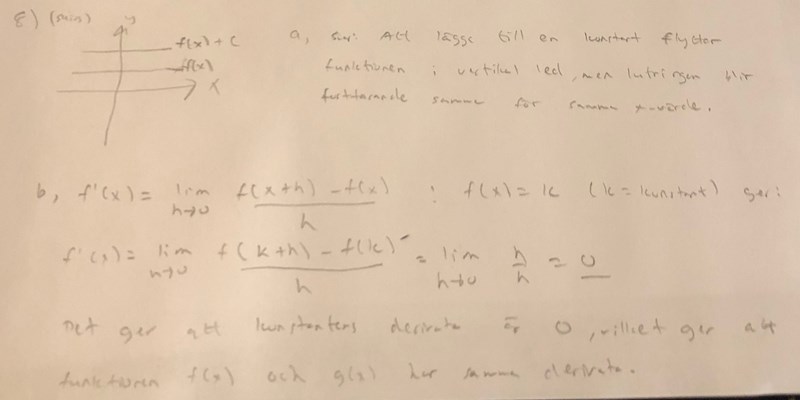 8) (5min)
y
f(x) + C
f(x)
x
a, svar: Att lägga till en konstant flyttar
funktionen i vertikal led, men lutningen blir
fortfarande samma för samma x-värde.
b, f'(x) = lim h→0 f(x+h) - f(x) / h : f(x) = k (k = konstant) ger:
f'(x) = lim h→0 f(k+h) - f(k) / h = lim h→0 h/h = 0
Det ger att konstantens derivata är 0, vilket ger att
funktionen f(x) och g(x) har samma derivata.